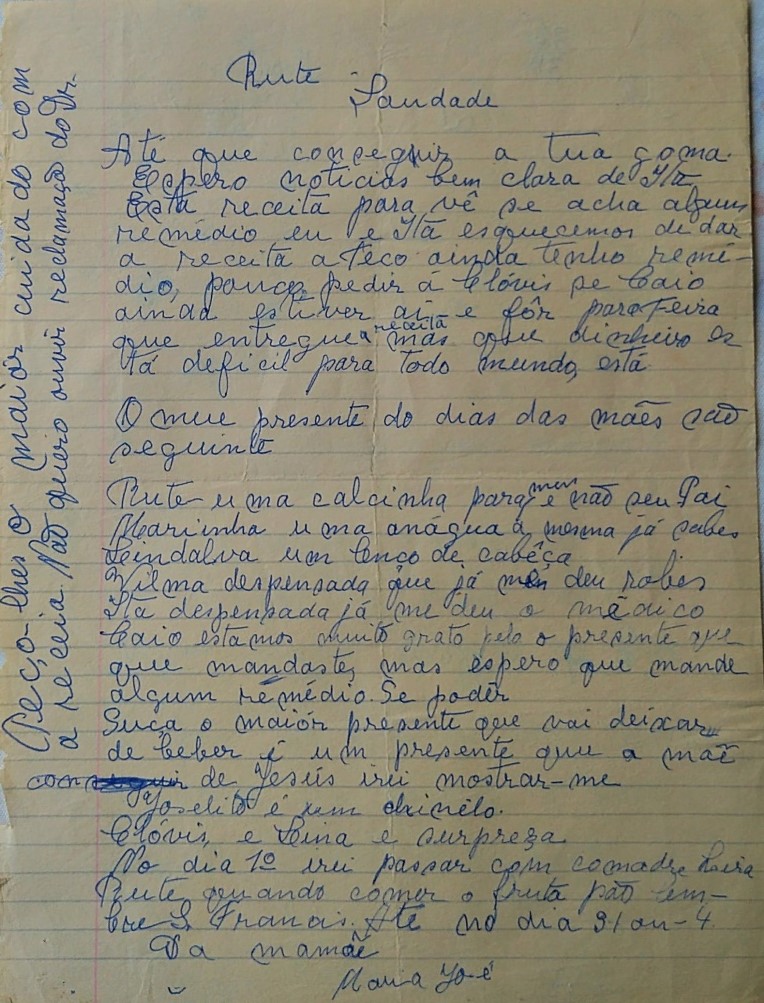 Rute
Saudade
Até que conseguir a tua goma.
Espero noticias bem clara de Itã
Està receita para vê se acha algum
remédio eu e Itã esquecemos de dar
a receita a Teco ainda tenho remé-
dio, pouco, pedir á Clóvis se Caio
ainda estiver ai e fôr para Feira
que entregue a receita mas que dinheiro es
tá deficil para todo mundo, está
O meu presente do dias das mães são
seguinte
Rute uma calcinha para mim e não seu Pai
Marinha uma anágua a mesma já sabes
Lindalva um lenço de cabêça
Vilma despensada que já me deu robes
Itã despensada já me deu o médico
Caio estamos muito grato pelo o presente que
que mandaste, mas espero que mande
algum remédio. Se podêr
Suça o maiór presente que vai deixar
de beber é um presente que a mãe
de Jesús irei mostrar-me
Joselito é um chinélo.
Clóvis e Lina e surpreza
No dia 1º irei passar com comadre
Rute quando comer o fruta pão lem-
bre S. Francis. Até no dia 31 ou-4
Da mamãe
Maria José
Peço-lhes o maiór cuidado com
a receia. Não quero ouvir reclamação do Dr.